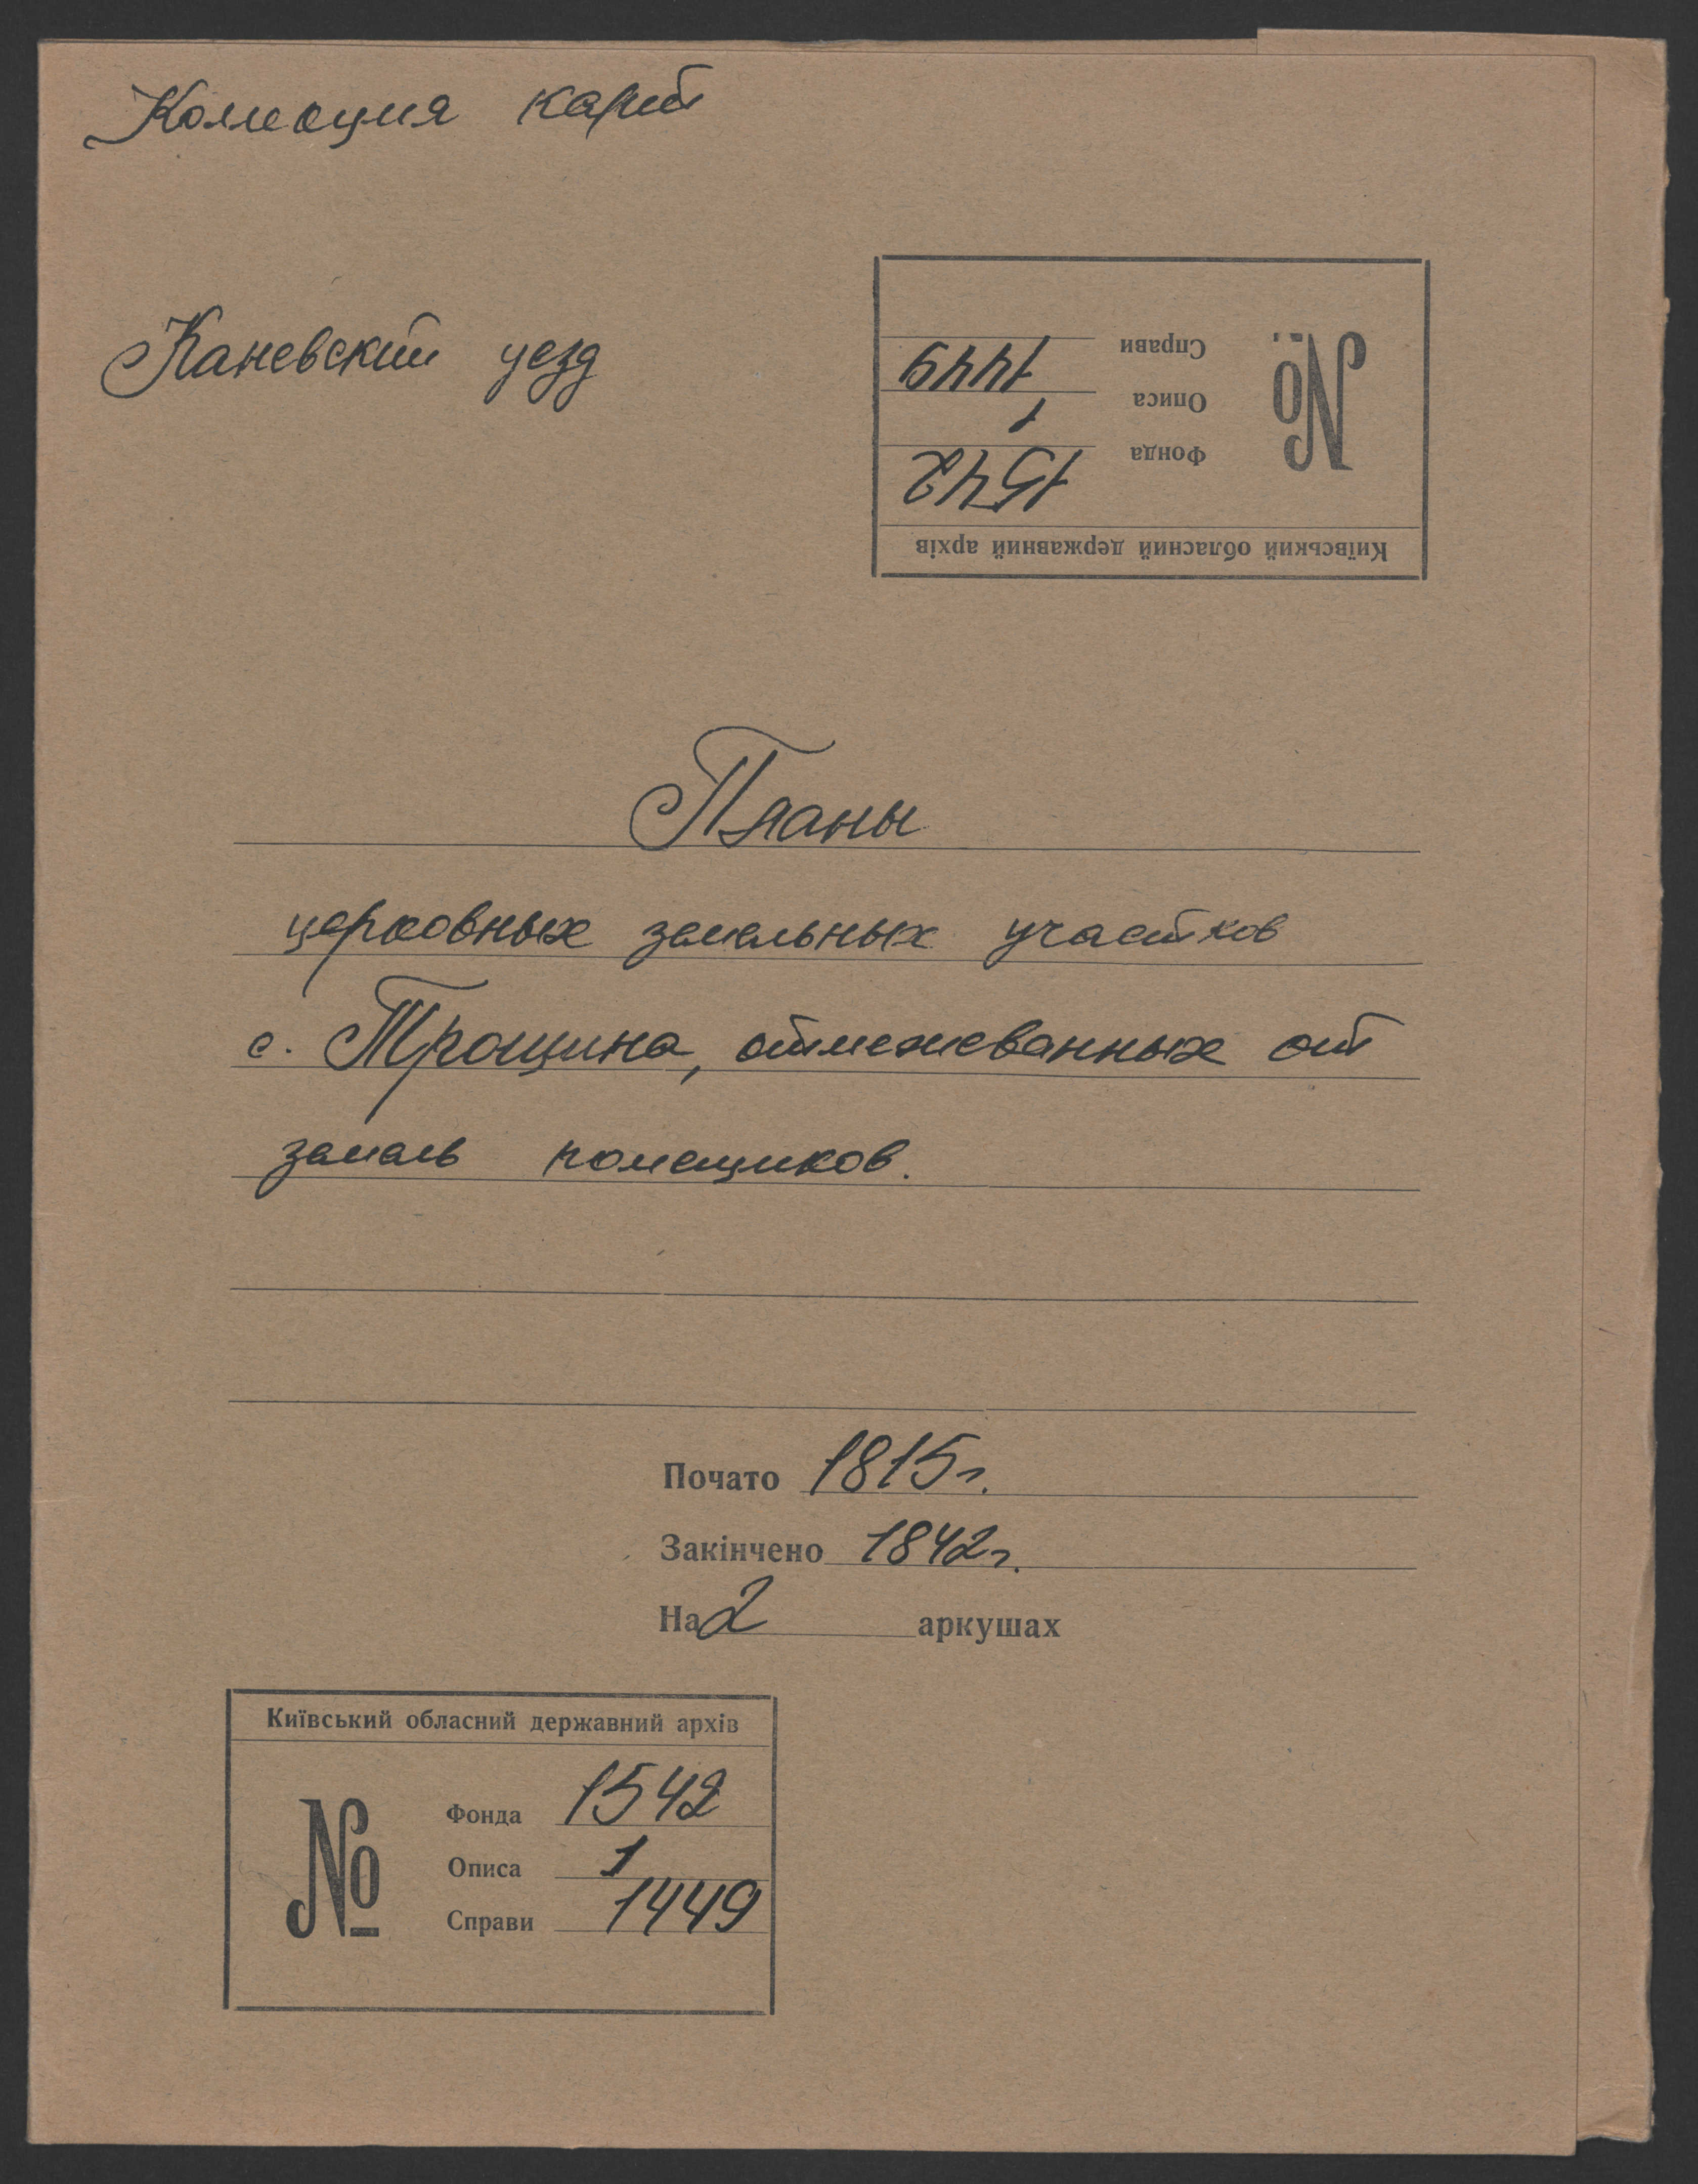 Коллекция карт
Каневский уезд
Київський обласний державний архів
№
Фонда 1542
Описа 1
Справи 1449
Планы
церковных земельных участков
с. Трощина, отмежеванных от
земель помещиков.
Почато 1815 г.
Закінчено 1842 г.
На 2 аркушах
Київський обласний державний архів
№
Фонда 1542
Описа 1
Справи 1449